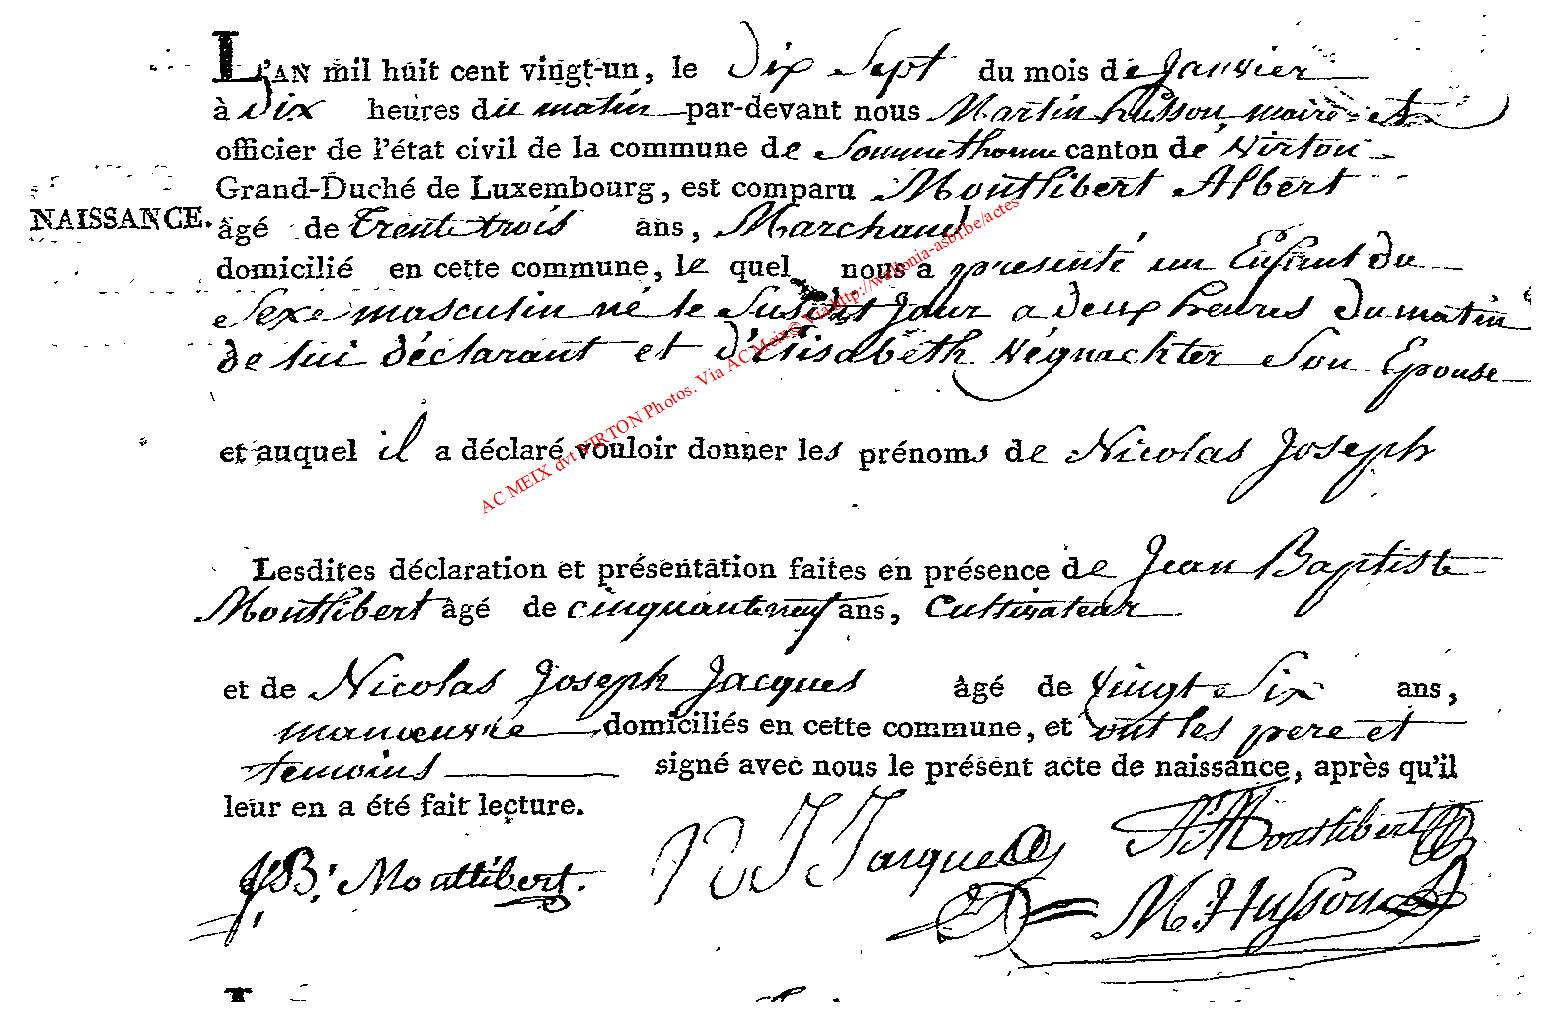 L'AN mil huit cent vingt-un, le Dix Sept du mois de Janvier
à Dix heures du matin par-devant nous Martin husson, maire et
officier de l'état civil de la commune de Sommethonne canton de Virton
Grand-Duché de Luxembourg, est comparu Montlibert Albert
NAISSANCE. âgé de trente trois ans, Marchand
domicilié en cette commune, le quel nous a presenté un Enfant du
Sexe masculin né le Susdit Jour a deux heures du matin
de lui déclarant et d'Elisabéth Végnachter Son Epouse
et auquel il a déclaré vouloir donner les prénoms de Nicolas Joseph
Lesdites déclaration et présentation faites en présence de Jean Baptiste
Montlibert âgé de cinquante neuf ans, Cultivateur
et de Nicolas Joseph Jacques âgé de vingt Six ans,
manœuvre domiciliés en cette commune, et ont les pere et
temoins signé avec nous le présent acte de naissance, après qu'il
leur en a été fait lecture.
J. B. Montlibert. N J Jacques A Montlibert
M. Husson
AC MEIX dvt VIRTON Photos. Via AC Meix@ Via http://wallonia-asbl.be/actes